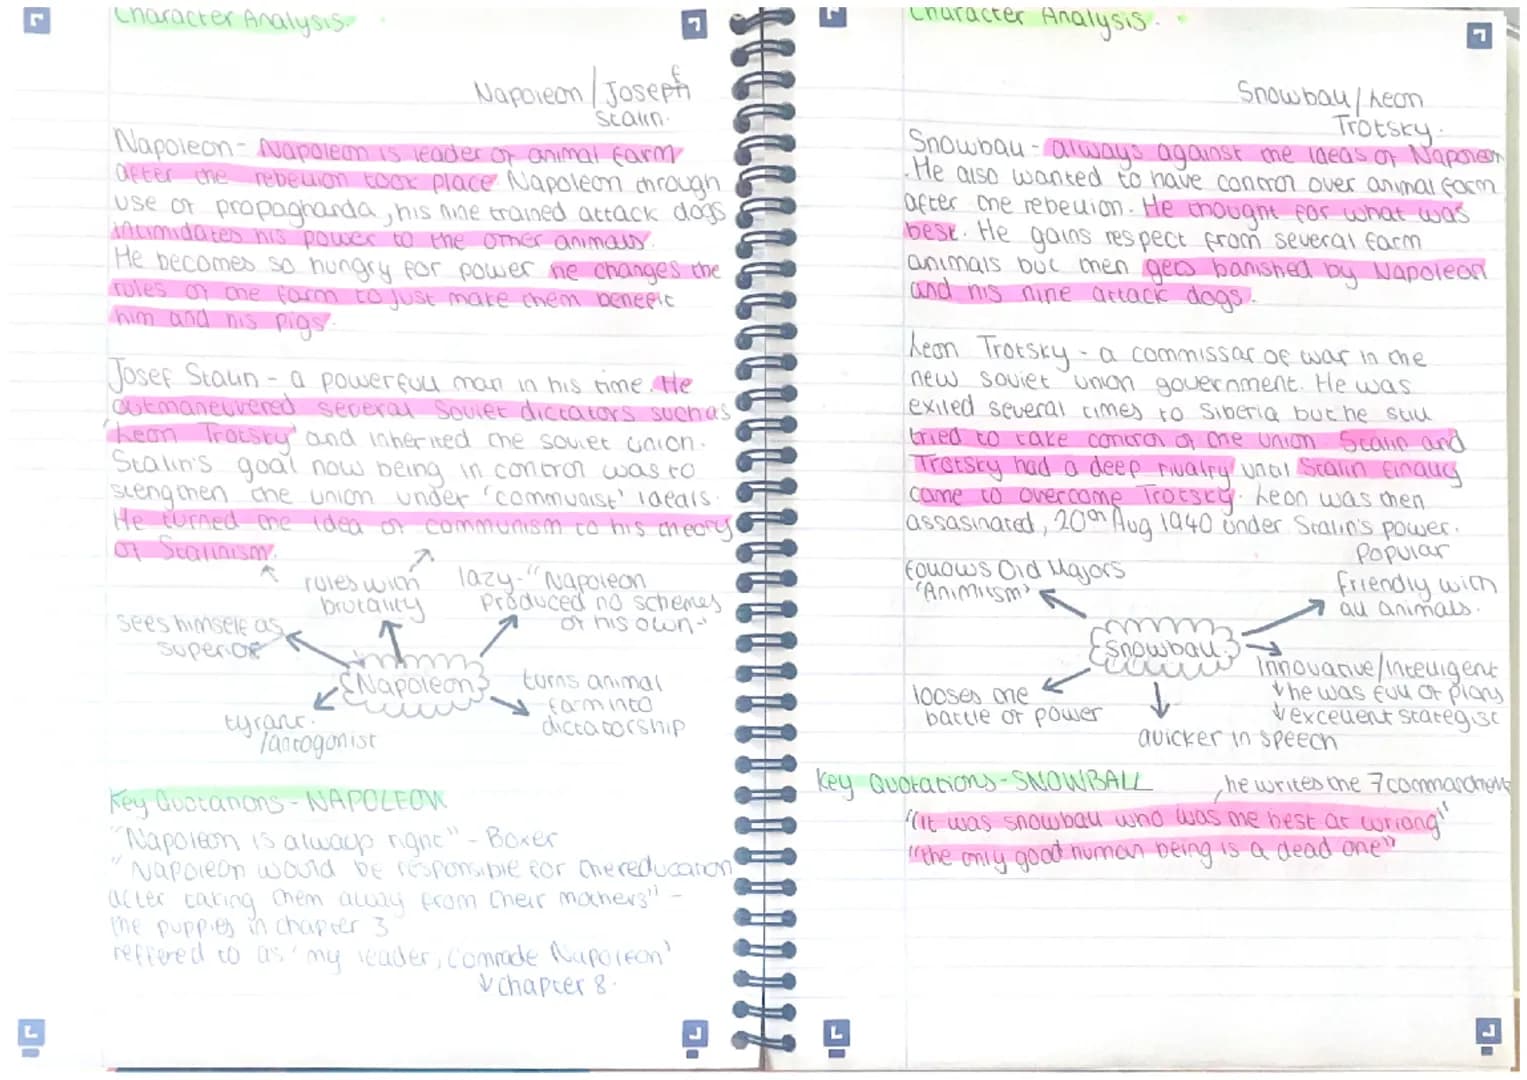 Character Analysis.
Napoleon / Joseph f
Stalin.
Napoleon - Napoleon is leader of animal farm
after the rebellion took place Napoleon through
use of propagharda, his nine trained attack dogs
intimidates his power to the other animals.
He becomes so hungry for power he changes the
rules of the farm to just make them benefit
him and his pigs.
Josef Stalin - a powerfull man in his time. He
outmaneuvered several Soviet dictators such as
'Leon Trotsky' and inherited the soviet union.
Stalin's goal now being in control was to
stengthen the union under 'communist' ideals.
He turned the idea of communism to his theory
of Stalinism.
rules with
brutality
lazy - "Napoleon
produced no schemes
of his own"
sees himself as
superior
Napoleon
turns animal
farm into
dictatorship
tyrant.
/antogonist
Key Quotations - NAPOLEON
"Napoleon is always right" - Boxer
"Napoleon would be responsible for the reducation
after taking them away from their mothers" -
the puppies in chapter 3
reffered to as 'my leader, Comrade Napoleon'
chapter 8.
Character Analysis.
Snowball / Leon
Trotsky.
Snowball - always against the ideas of Napoleon
. He also wanted to have control over animal farm
after the rebellion. He thought for what was
best. He gains respect from several farm
animals but then gets banished by Napoleon
and his nine attack dogs.
Leon Trotsky - a commissar of war in the
new soviet union government. He was
exiled several times to Siberia but he still
tried to take control of the union Stalin and
Trotsky had a deep rivalry until Stalin finally
came to overcome Trotsky. Leon was then
assasinated, 20th Aug 1940 under Stalin's power.
follows Old Majors
'Animlism'
Popular
friendly with
all animals.
Snowball.
innovative/intelligent
he was full of plans
excellent stategist
looses the
battle of power
quicker in speech
Key Quotations - SNOWBALL
he writes the 7 commandments
"it was snowball who was me best at wriong"
"the only good human being is a dead one"